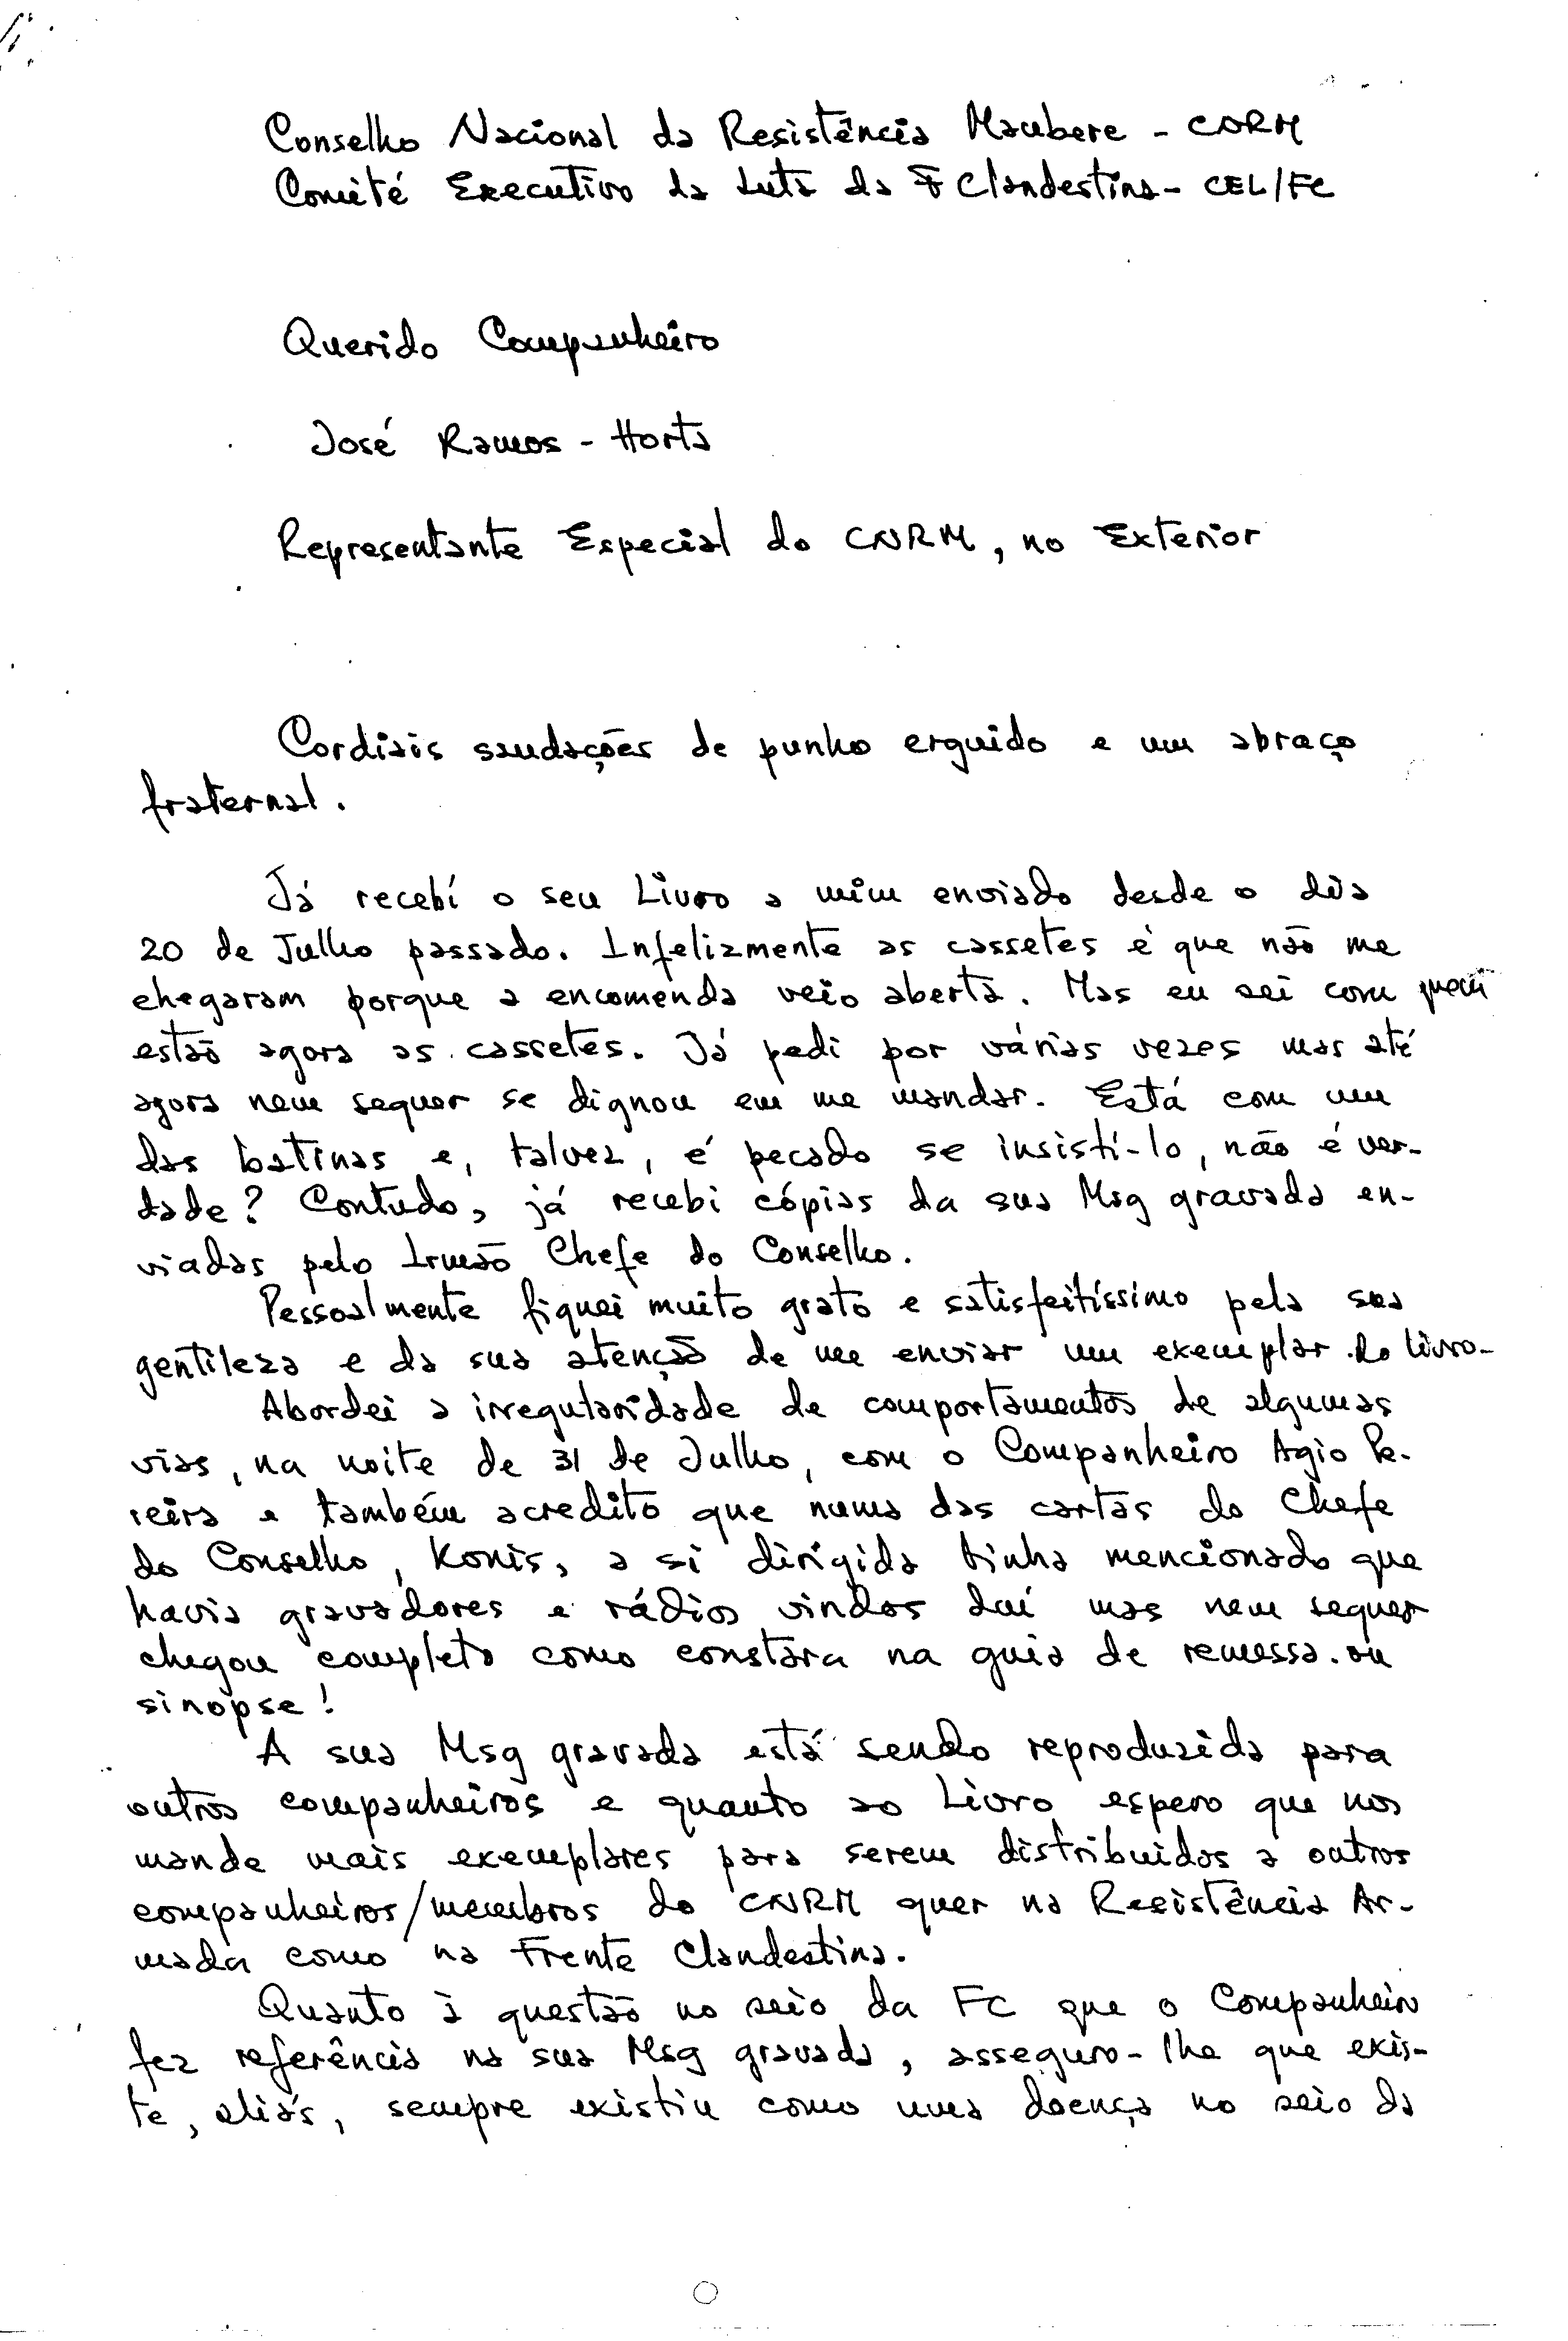 Conselho Nacional da Resistência Maubere - CNRM
Comité Executivo da Luta da F Clandestina - CEL/FC
Querido Companheiro
José Ramos - Horta
Representante Especial do CNRM, no Exterior
Cordiais saudações de punho erguido e um abraço
fraternal.
Já recebí o seu Livro a mim enviado desde o dia
20 de Julho passado. Infelizmente as cassetes é que não me
chegaram porque a encomenda veio aberta. Mas eu sei com quem
estão agora as cassetes. Já pedi por várias vezes mas até
agora nem sequer se dignou em me mandar. Está com um
das batinas e, talvez, é pecado se insistí-lo, não é ver-
dade? Contudo, já recebi cópias da sua Msg gravada en-
viadas pelo Irmão Chefe do Conselho.
Pessoalmente fiquei muito grato e satisfeitíssimo pela sua
gentileza e da sua atenção de me enviar um exemplar do livro-
Abordei a irregularidade de comportamentos de algumas
vias, na noite de 31 de Julho, com o Companheiro Agio Pe-
reira e também acredito que numa das cartas do Chefe
do Conselho, Konis, a si dirigida tinha mencionado que
havia gravadores e rádios vindos daí mas nem sequer
chegou completo como constara na guia de remessa. ou
sinopse!
A sua Msg gravada está sendo reproduzida para
outros companheiros e quanto ao Livro espero que nos
mande mais exemplares para serem distribuidos a outros
companheiros/membros do CNRM quer na Resistência Ar-
mada como na Frente Clandestina.
Quanto à questão no seio da FC que o Companheiro
fez referência na sua Msg gravada, asseguro-lhe que exis-
te, aliás, sempre existiu como uma doença no seio da